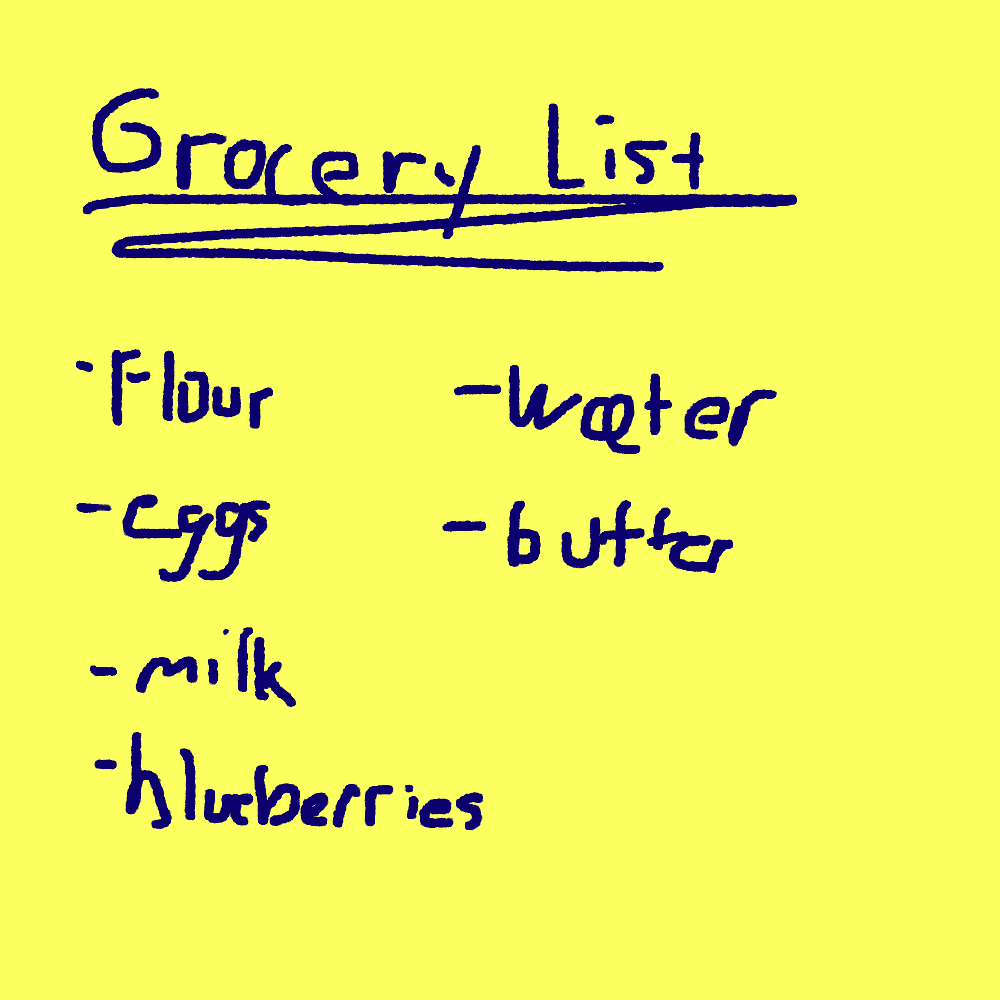 Grocery List
- Flour
- eggs
- milk
- blueberries
- water
- butter